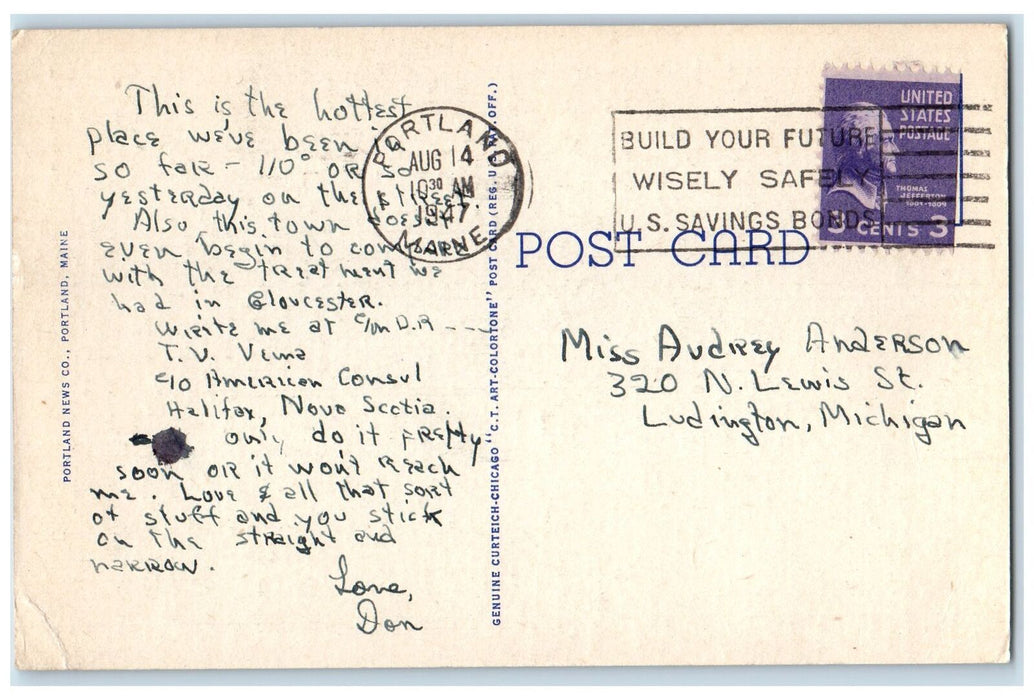 This is the hottest
place we've been
so far - 110° or so
yesterday on the street
Also this town doesn't
even begin to compare
with the treatment we
had in Gloucester.
Write me at
T.V. Vema
c/o American Consul
Halifax, Nova Scotia.
only do it pretty
soon or it won't reach
me. Love & all that sort
of stuff and you stick
on the straight and
narrow.
Love,
Don
PORTLAND NEWS CO., PORTLAND, MAINE
PORTLAND
AUG 14
10 30 AM
1947
MAINE
GENUINE CURTEICH-CHICAGO "C.T. ART-COLORTONE" POST CARD (REG. U.S. PAT. OFF.)
BUILD YOUR FUTURE
WISELY SAFELY
U.S. SAVINGS BONDS
UNITED
STATES
POSTAGE
THOMAS
JEFFERSON
1801-1809
3 CENTS 3
POST CARD
Miss Audrey Anderson
320 N. Lewis St.
Ludington, Michigan